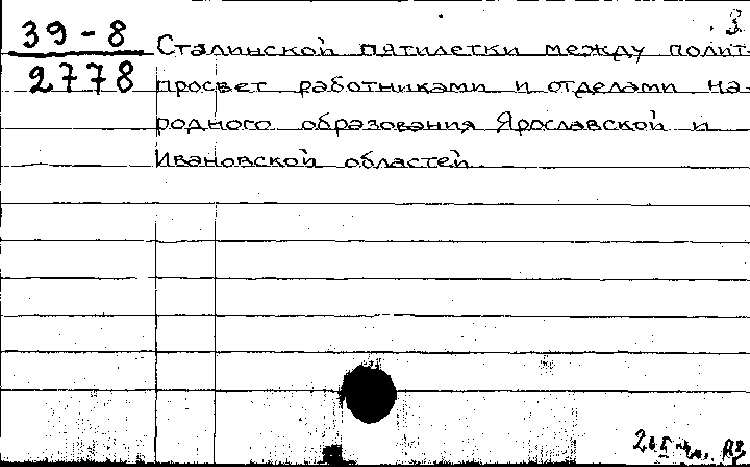 3
39-8
2778
Сталинской пятилетки между полит-
просвет работниками и отделами на-
родного образования Ярославской и
Ивановской областей.